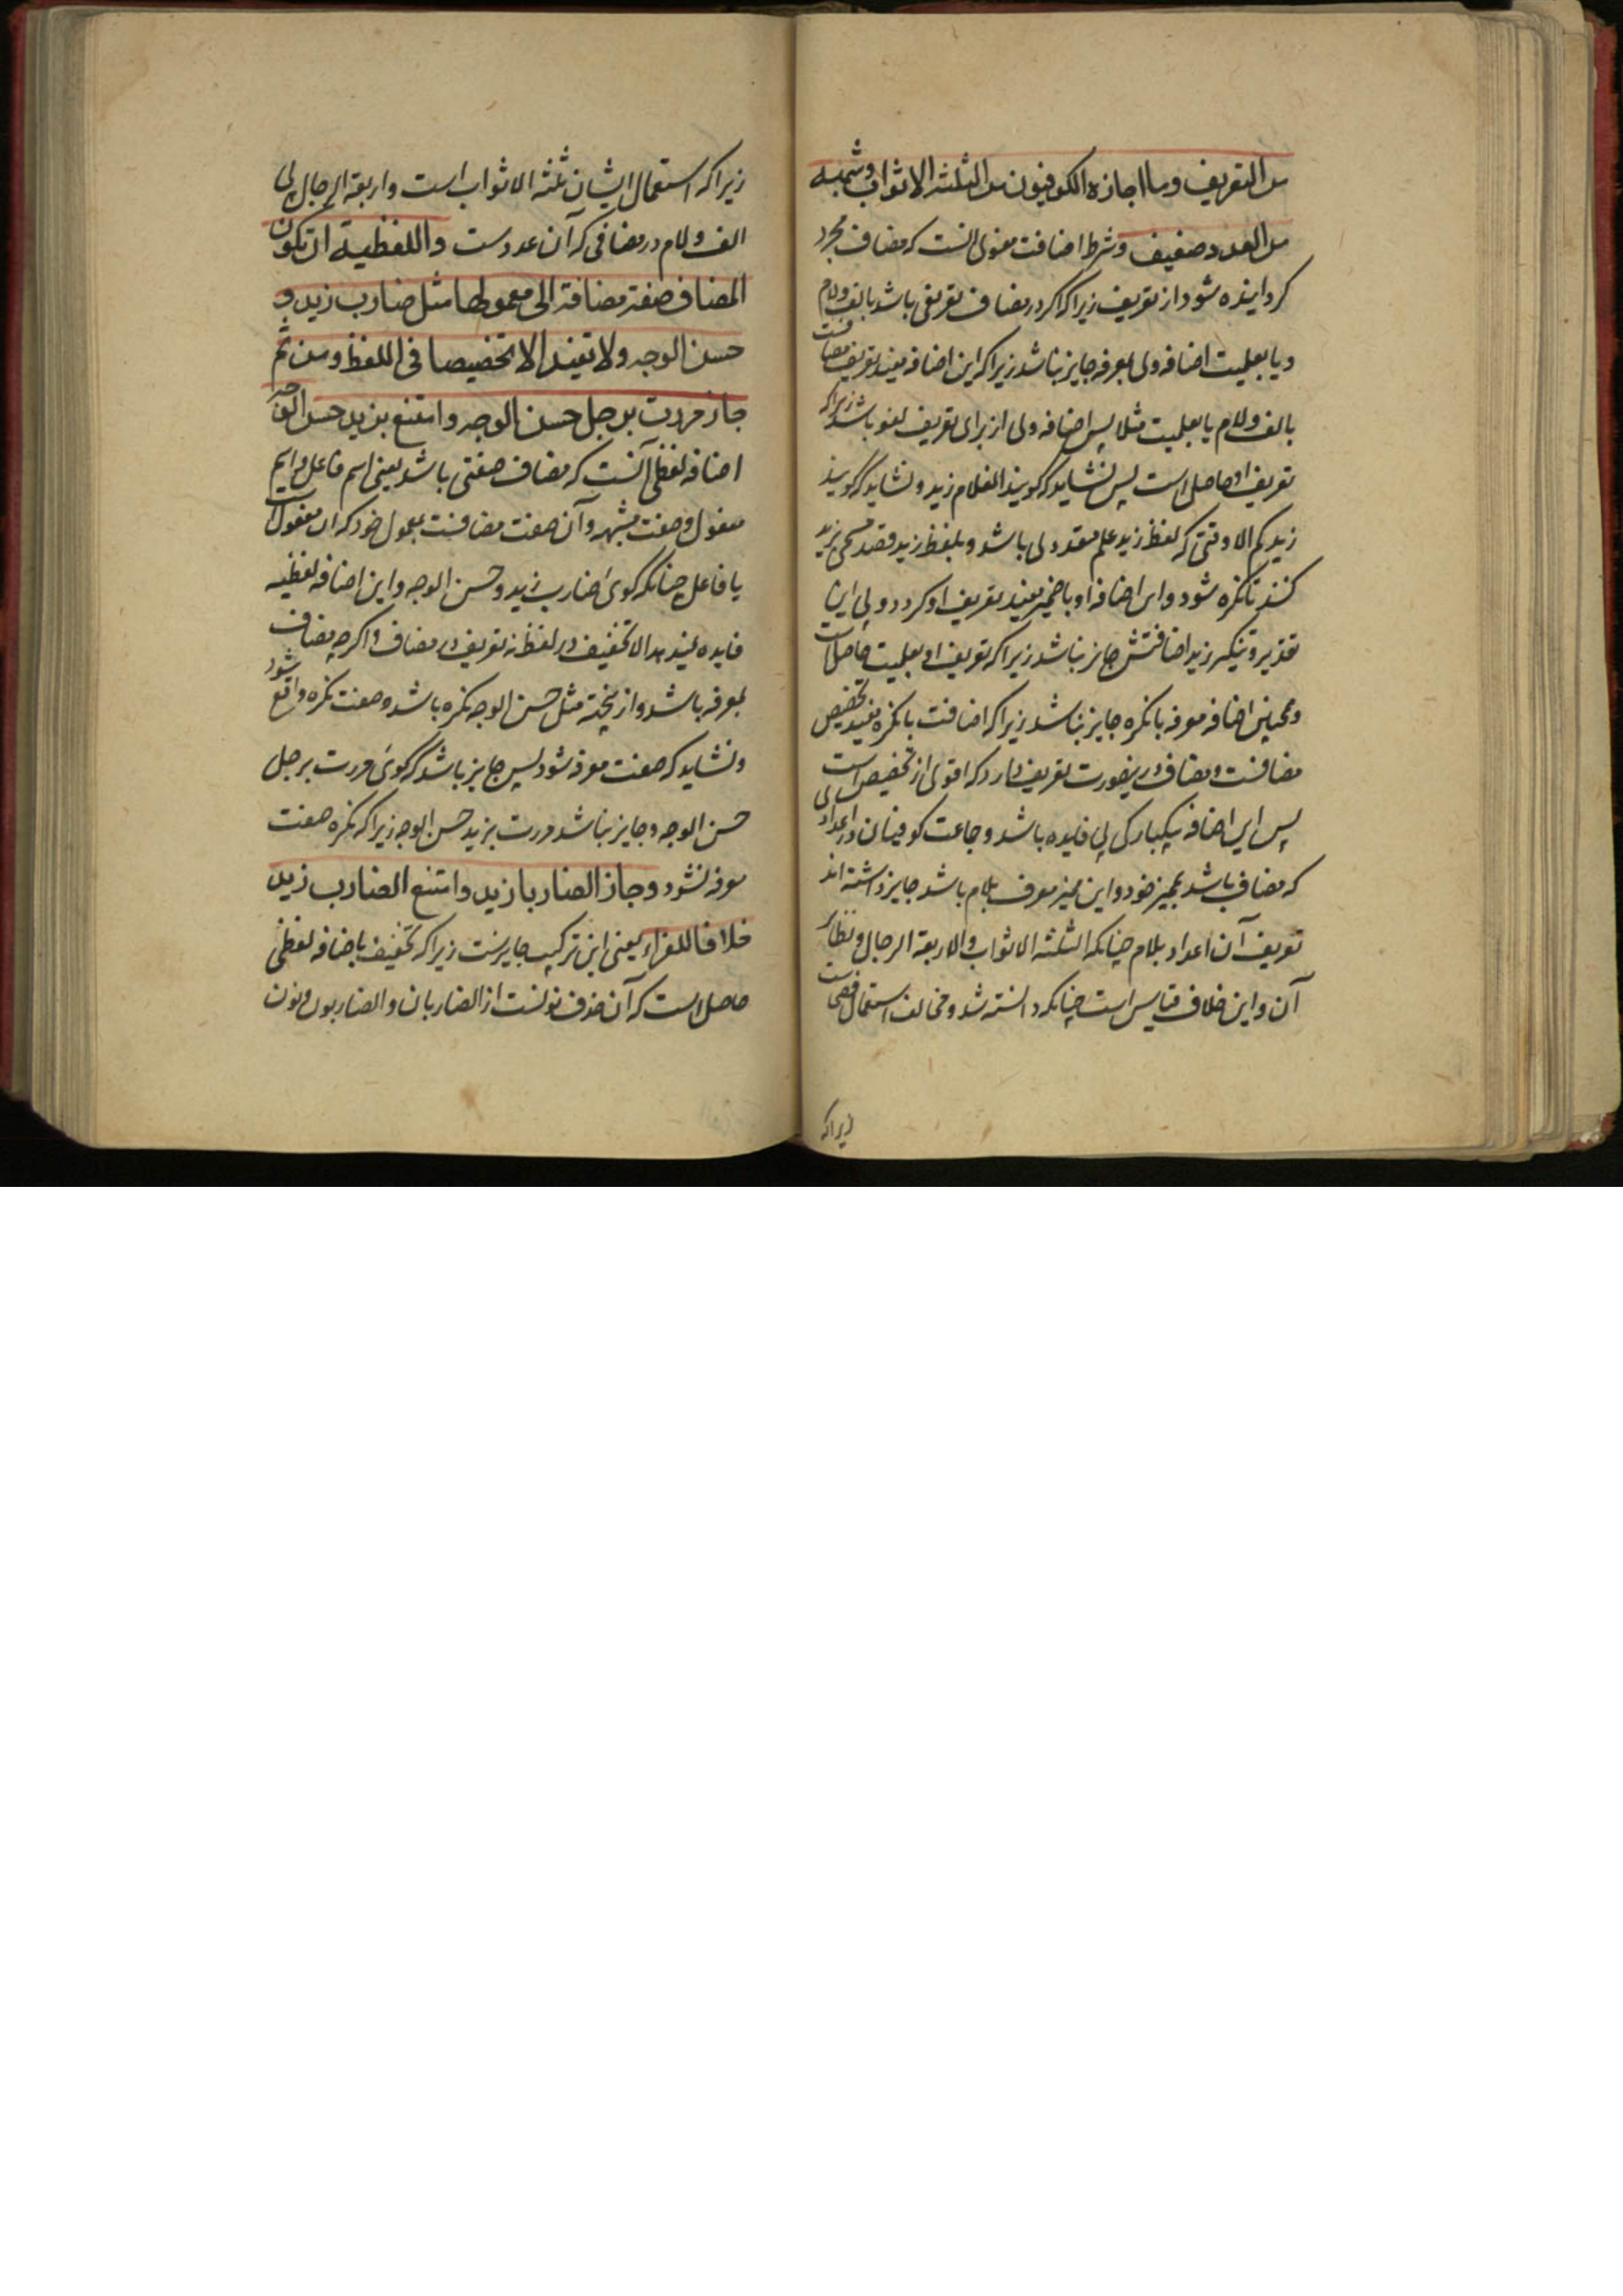 من التعریف وما اجازه الکوفیون من الثلثه الاثواب وشبهه
من العدد ضعیف وشرط اضافت معنوی انست که مضاف مجرد
کردانیده شود از تعریف زیراکه اکر در مضاف تعریفی باشد بالف ولام
ویا بعلمیت اضافه وی بمعرفه جایز نباشد زیراکه این اضافه مفید تعریف مضافست
بالف ولام یا بعلمیت مثلا پس اضافه وی از برای تعریف لغو باشد زیراکه
تعریف او حاصل است پس نشاید که کویند الغلام زید ونشاید که کویند
زیدکم الا وقتی که لفظ زید علم متعدد باشد وبلفظ زید قصد مسمی بزید
کنند تا نکره شود واین اضافه او با ضمیر مفید تعریف او کردد وبی این
تقدیر وتنکیر زید اضافتش جایز نباشد زیراکه تعریف او بعلمیت حاصل است
وهمچنین اضافه معرفه با نکره جایز نباشد زیراکه اضافت با نکره مفید تخصیص
مضافست ومضاف درینصورت تعریف دارد که اقوی از تخصیص است
پس این اضافه بیکبارکی بی فایده باشد وجماعت کوفیان در اعدادی
که مضاف باشد بممیز خود واین ممیز معرف بلام باشد جایز داشته اند
تعریف آن اعداد بلام چنانکه الثلثه الاثواب والاربعة الرجال ونظایر
آن واین خلاف قیاس است چنانکه دانسته شد ومخالف استعمال فصحاست
زیراکه
زیراکه استعمال ایشان ثلثة الاثواب است واربعة الرجال بی
الف ولام در مضافی که آن عددست واللفظیة ان تکون
المضاف صفة مضافة الی معمولها مثل ضارب زید و
حسن الوجه ولا تفید الا تخفیفا فی اللفظ ومن ثم
جاز مررت برجل حسن الوجه وامتنع بزید حسن الوجه
اضافه لفظی آنست که مضاف صفتی باشد یعنی اسم فاعل واسم
مفعول وصفت مشبهه وآن صفت مضافست بمعمول خود که ان مفعولست
یا فاعل چنانکه کوی ضارب زید وحسن الوجه واین اضافه لفظیه
فایده نمیدهد الا تخفیف در لفظ نه تعریف در مضاف واکرچه مضاف
بمعرفه باشد وازینجهته مثل حسن الوجه نکره باشد وصفت نکره واقع شود
ونشاید که صفت معرفه شود پس جایز باشد که کوی مررت برجل
حسن الوجه وجایز نباشد مررت بزید حسن الوجه زیراکه نکره صفت
معرفه نشود وجاز الضاربا زید وامتنع الضارب زید
خلافا للفراء یعنی این ترکیب جایزست زیراکه تخفیف باضافه لفظی
حاصل است که آن حذف نونست از الضاربان والضاربون ونون